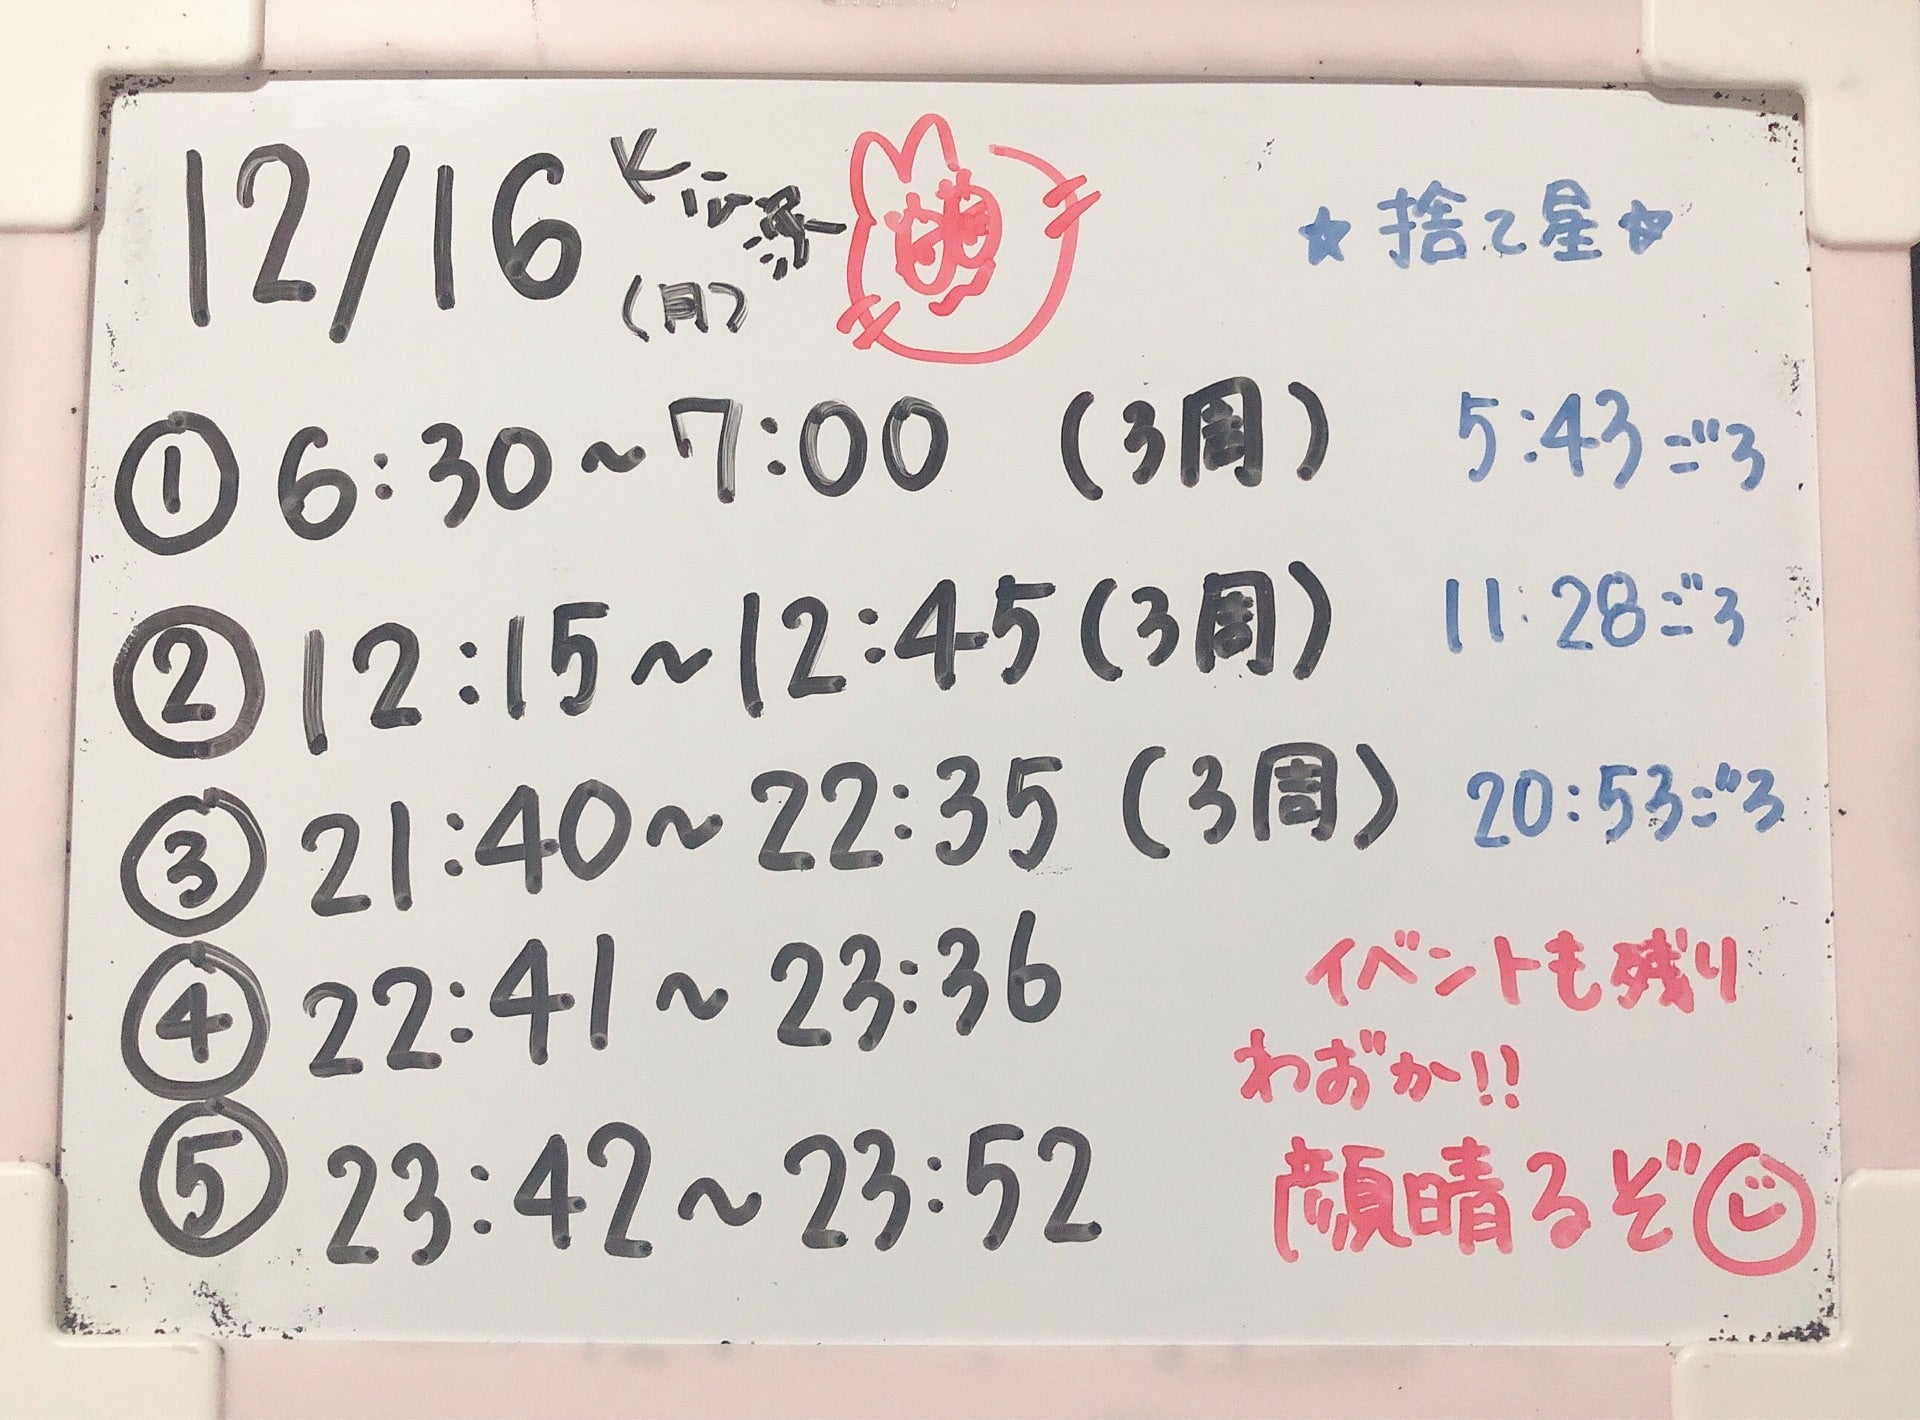 12/16
(月)
★捨て星★
① 6:30~7:00 (3周) 5:43ごろ
② 12:15~12:45(3周) 11:28ごろ
③ 21:40~22:35 (3周) 20:53ごろ
④ 22:41~23:36
⑤ 23:42~23:52
イベントも残り
わずか!!
顔晴るぞ